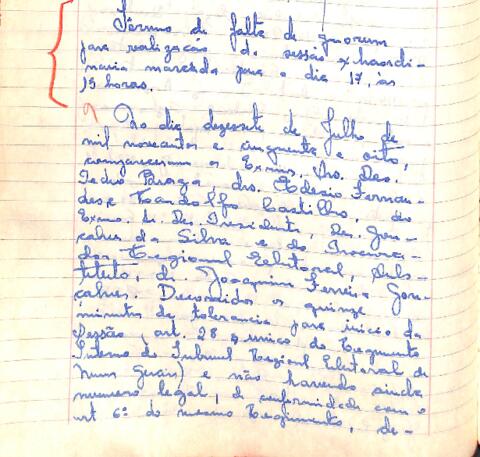 Têrmo de falta de quorum
para realização da sessão extraordi-
naria marcada para o dia 17, às
15 horas.
No dia dezessete de Julho de
mil novecentos e cinquenta e oito,
compareceram os Exmos. Srs. Des.
Pedro Braga, drs. Edesio Fernan-
des e Randolfo Castilho, do
Exmo. Sr. Des. Presidente, Des. Gon-
çalves da Silva e do Procura-
dor Regional Eleitoral, Subs-
tituto, dr. Joaquim Ferreira Gon-
çalves. Decorridos os quinze
minutos de tolerancia para inicio da
Sessão, art. 28 § unico do Regimento
Interno do Tribunal Regional Eleitoral de
Minas Gerais) e não havendo ainda
numero legal, de conformidade com o
art 6º do mesmo Regimento, de-